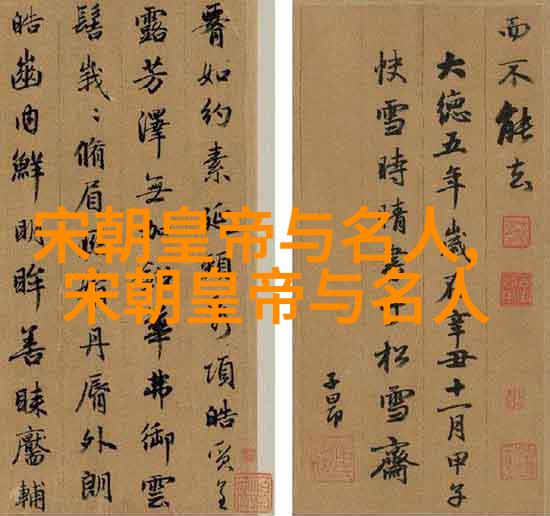 宋朝皇帝与名人,
宋朝皇帝与名人
而不能去
大德五年歲在辛丑十一月甲子
快雪時晴書于松雪齋
子昂
如約素延頸秀項皓質呈
露芳澤無加鉛華弗御雲
髻峩〻脩眉丹脣外朗
皓齒内鮮明眸善睞靨輔